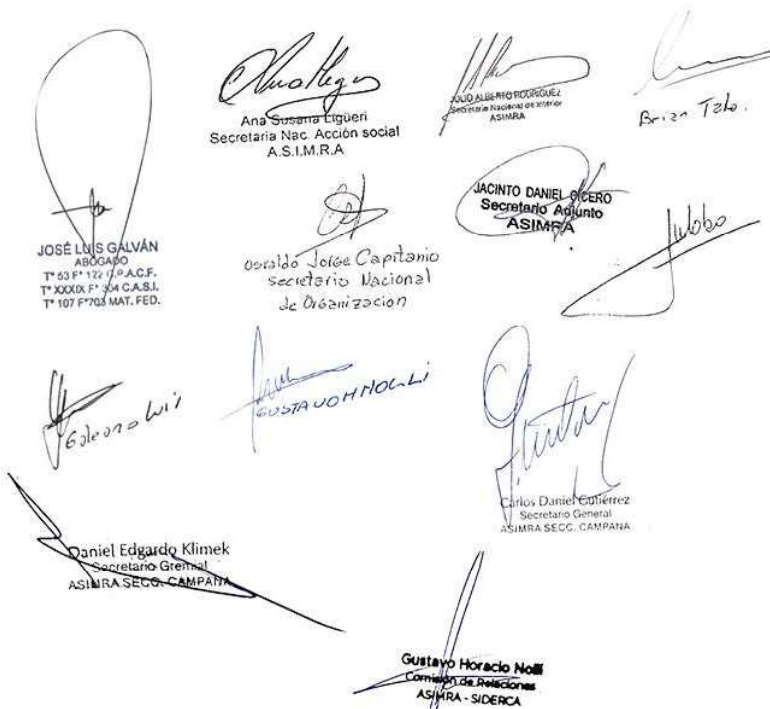 Ana Susana Ligüeri
Secretaria Nac. Acción social
A.S.I.M.R.A
JULIO ALBERTO RODRIGUEZ
Secretario Nacional de Interior
ASIMRA
Brian
JOSÉ LUIS GALVÁN
ABOGADO
T° 53 F° 122 C.P.A.C.F.
T° XXXIX F° 304 C.A.S.I.
T° 107 F°703 MAT. FED.
Osvaldo Jorge Capitanio
Secretario Nacional
de Organizacion
JACINTO DANIEL CICERO
Secretario Adjunto
ASIMRA
Galeano Luis
GUSTAVO H NOLLI
Carlos Daniel Gutiérrez
Secretario General
ASIMRA SECC. CAMPANA
Daniel Edgardo Klimek
Secretario Gremial
ASIMRA SECC. CAMPANA
Gustavo Horacio Nolli
Comisión de Relaciones
ASIMRA - SIDERCA